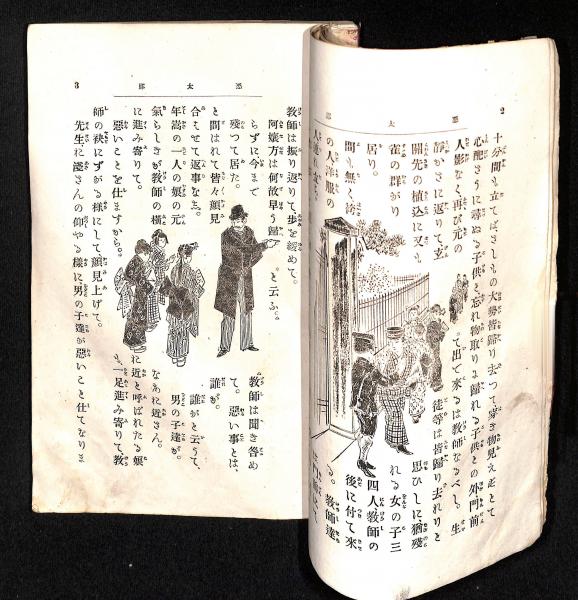 2
憑太郎
十分間も立てばさしもの大勢皆歸り去つて穿き物見え
心配さうに尋ぬる子供と忘れ物取りに歸れる子供との外門前
人影なく再び元の
靜かさに返りて玄
關先の植込に又も
雀の群がり
居り。
間も無く
の人洋服の
て出で來るは教師なるべし。生
徒等は皆歸り去れりと
思ひしに猶殘
れる女の子三
四人教師の
後に付て來
る。教師達
3
憑太郎
教師は振り返りて歩を緩めて。
阿孃方は何故早う歸
らずに今まで
殘つて居た。
と云ふ。
と問はれて皆々顏見
合えせて返事なし。
年嵩の一人の娘の元
氣らしきが教師の橫
に進み寄りて。
惡いことを仕ますから。
教師は聞き咎め
て。惡い事とは、
誰が。
誰がと云うて、
男の子達が。
なあに近さん。
に近と呼ばれたる娘
も一足進み寄りて、教
師の袂にすがる樣にして顏見上げて。
先生に淺さんの仰やる樣に男の子達が惡いこと仕てなりま